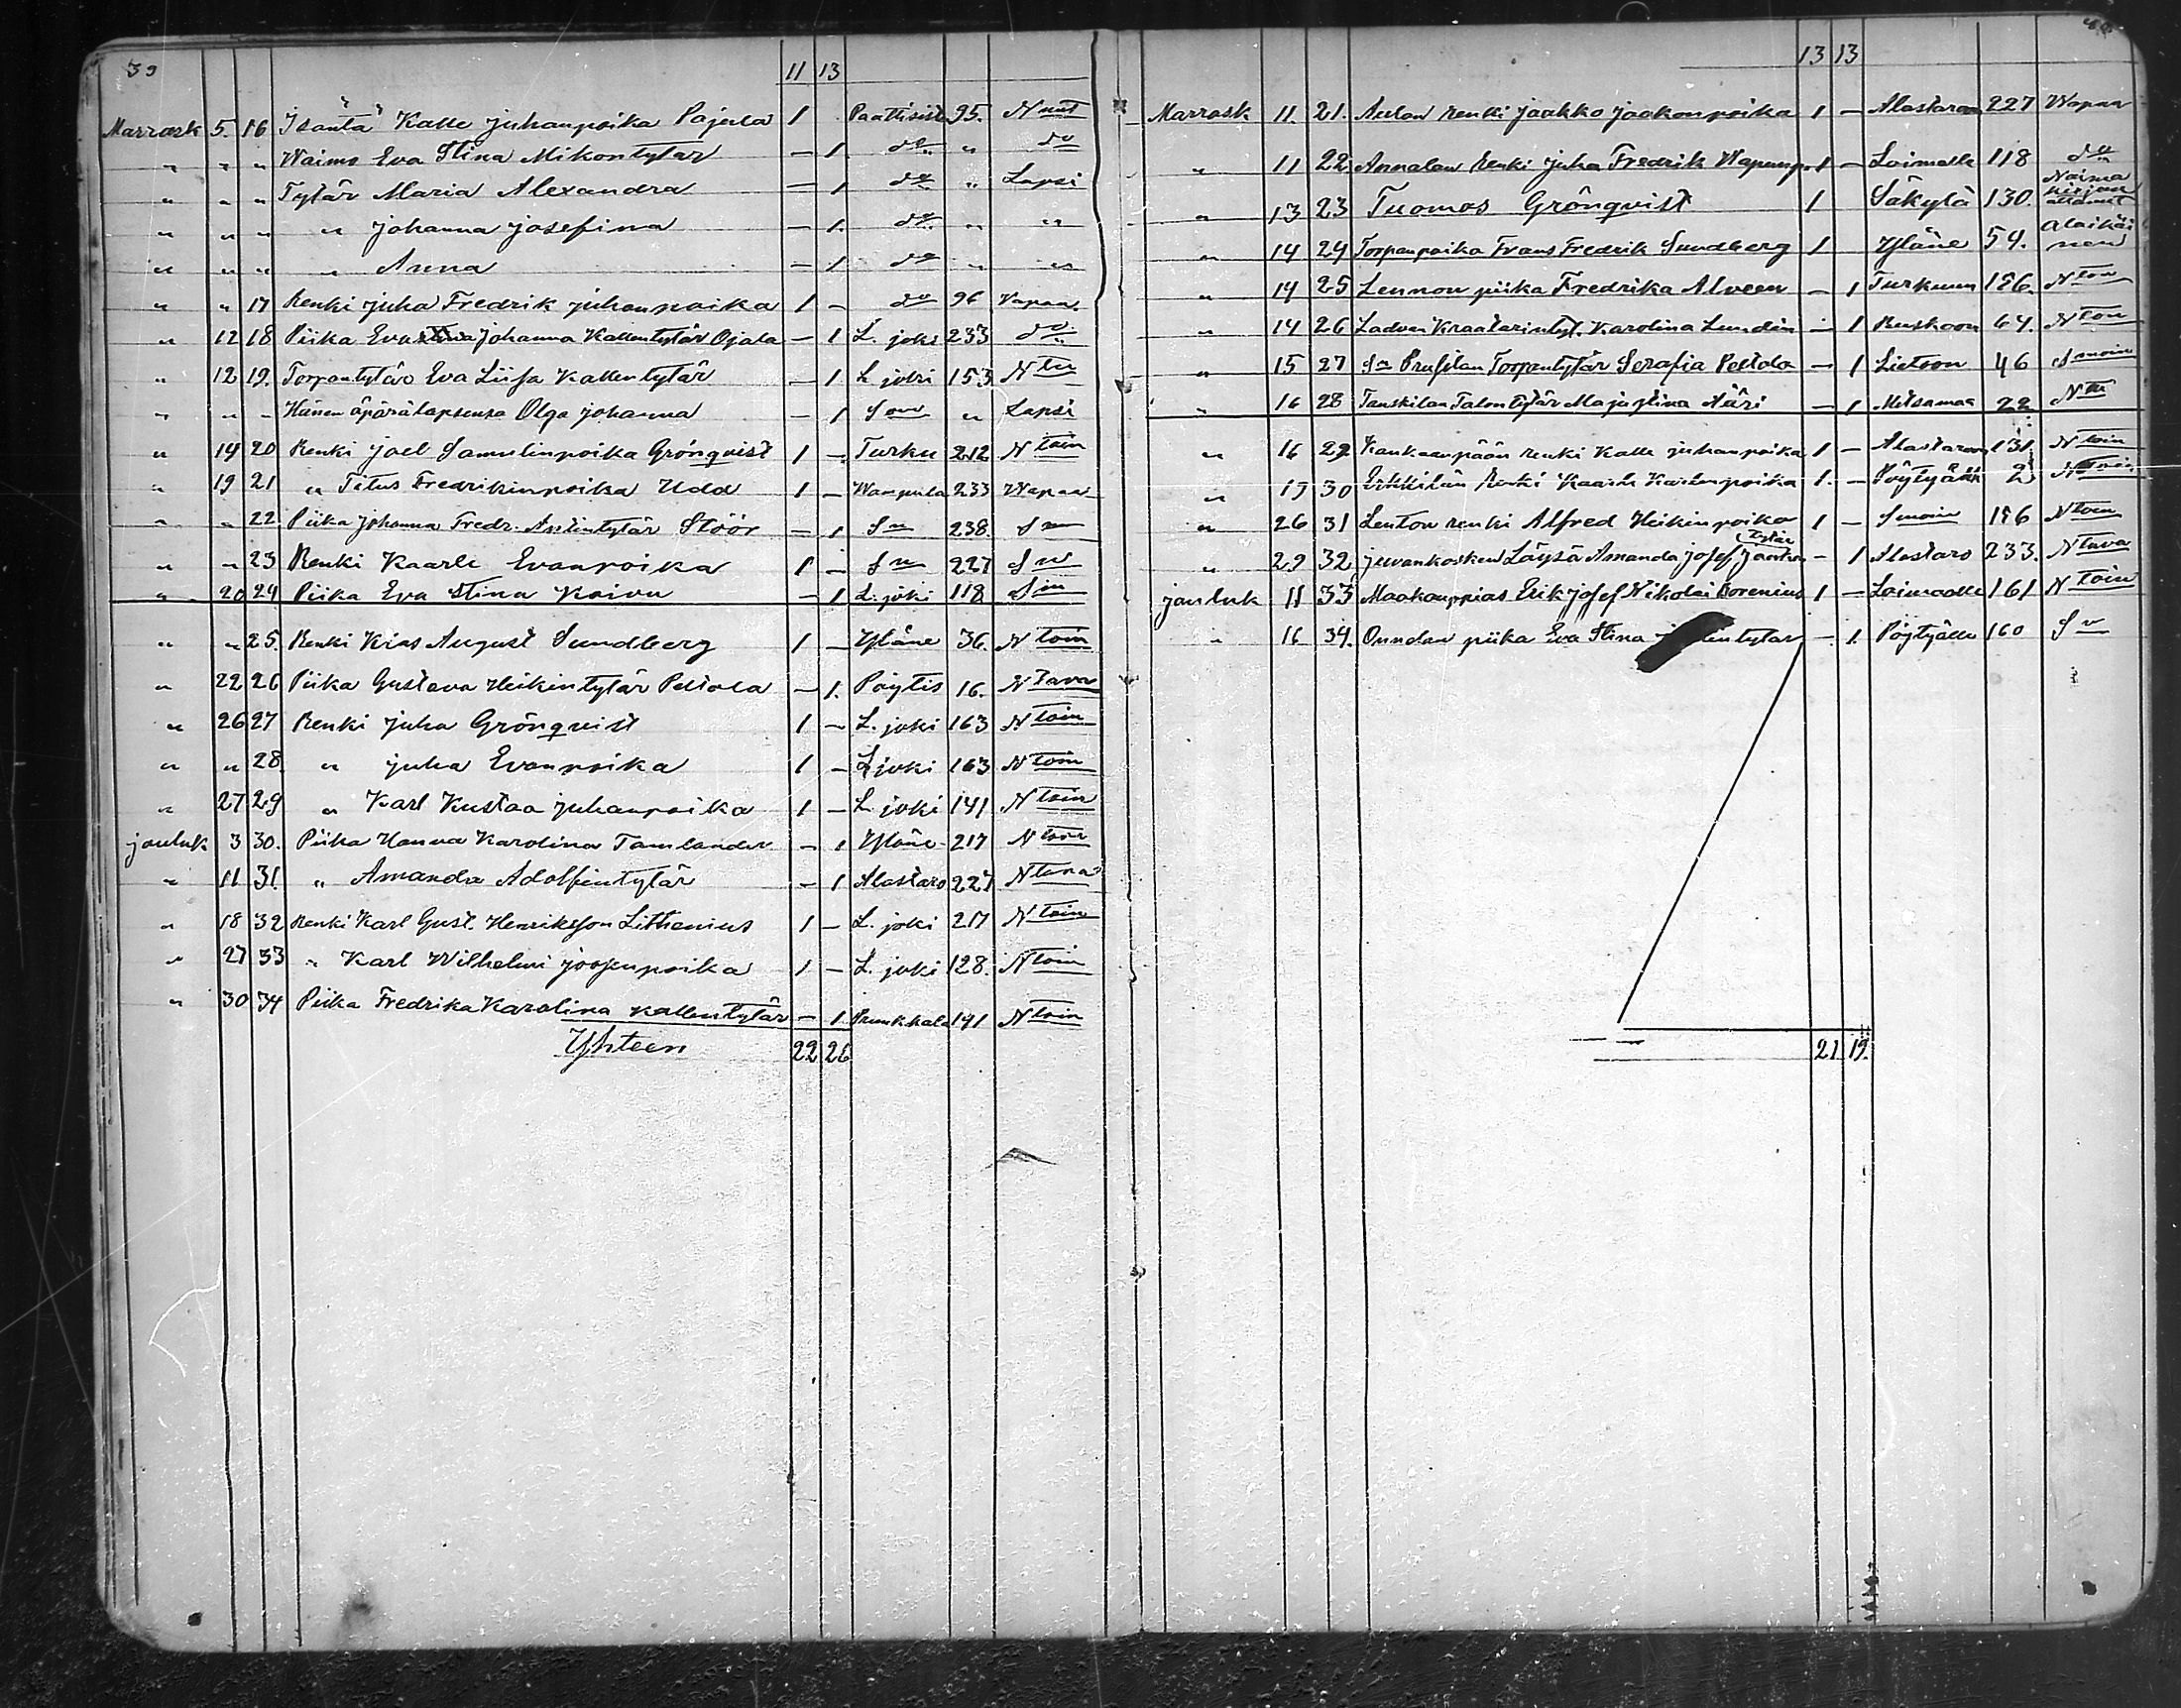 39
11 13
Marrask 5. 16 Isäntä Kalle Juhanpoika Pajula 1 Paattisista 95. N nut
" " " Waimo Eva Stina Mikontytär — 1. do " do
" " " Tytär Maria Alexandra — 1 do " Lapsi
" " " " Johanna Josefina — 1. do " "
" " " " Anna — 1 do " "
" " 17 Renki Juha Fredrik Juhanpoika 1 — do 96 Vapaa
" 12 18 Piika Eva Johanna Kallentytär Ojala — 1 L. joki 233 do
" 12 19. Torpantytär Eva Liisa Kallentytär — 1. L joki 153 N tu
" " - Hänen äpärälapsensa Olga Johanna — 1 " Lapsi
" 14 20 Renki Joel Samulinpoika Grönqvist 1 — Turku 212 N toin
" 19 21 " Titus Fredrikinpoika Udd 1 — Wampula 233 Wapaa
" " 22 Piika Johanna Fredr. Antintytär Stöör — 1 S n 238. S n
" " 23 Renki Kaarle Evanpoika 1 — S n 227 S n
" 20 24 Piika Eva Stina Koivu — 1 L. joki 118 S in
" " 25. Renki Kias August Sundberg 1 — Yläne 36. N toin
" 22 26 Piika Gustava Heikintytär Peltola — 1. Pöytis 16. N Tava
" 26 27 Renki Juha Grönqvist 1 — L. joki 163 N toin
" " 28. " Juha Evanpoika 1 — L joki 163 N toin
" 27 29 " Karl Kustaa Juhanpoika 1 — L joki 141 N toin
jouluk 3 30. Piika Hanna Karolina Tamlander — 1 Yläne 217 N toin
" 11 31. " Amanda Adolfintytär — 1 Alastaro 227 N tava
" 18 32 Renki Karl Gust. Henriksson Lithenius 1 — L. joki 217 N toin
" 27 33 " Karl Wilhelmi Joosenpoika 1 — L. joki 128. N toin
" 30 34 Piika Fredrika Karolina Kallentytär — 1. Prunkkala 191 N toin
Yhteen 22 26
13 13
Marrask 11. 21. Aulan renki Jaakko Jaakonpoika 1 — Alastaroon 227 Wapaa
" 11 22 Annalan Renki Juha Fredrik Wapunp. 1 — Loimalle 118 do
" 13 23 Tuomas Grönqvist 1 Säkylä 130. Naima kirjan
" 14 24 Torpanpoika Frans Fredrik Sundberg 1 Yläne 54. Alaikäi nen
" 14 25 Lennon piika Fredrika Alveen — 1 Turkuun 156. N ton
" 14 26 Ladven Kraatarintyt. Karolina Lundén — 1 Ruskoon 64. N ton
" 15 27 Torpantytär Serafia Peltola — 1 Lietoon 46 S moin
" 16 28 Tanskilan Talontytär Maja Stina Ääri — 1 Metsamaa 22 N tu
" 16 29 Kankaanpään renki Kalle Juhanpoika 1 — Alastaroon 131. N toin
" 19 30 Erkkilän Renki Kaarle Kaarlenpoika 1. — Pöytyälle 2 N toin
" 26 31 Lenton renki Alfred Heikinpoika 1 — S moin 156 N toin
" 29 32 Juvankosken Läysä Amanda Josef. tytär — 1 Alastaro 233. N tava
jouluk 11 33 Maakauppias Erik Josef Nikolai Borenius 1 — Loimaalle 161 N toin
" 16 34. Onndan piika Eva Stina intytar — 1. Pöytyälle 160 S n
21 19.